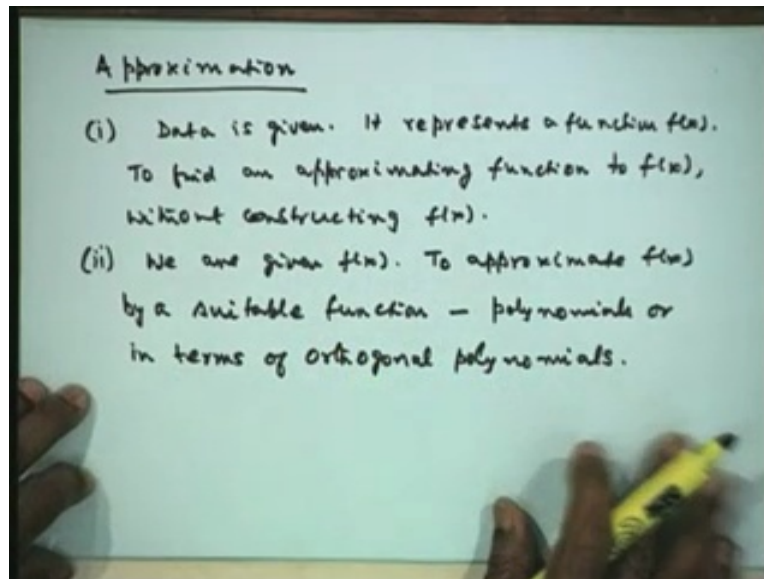 Approximation
(i) Data is given. It represents a function f(x).
To find an approximating function to f(x),
without constructing f(x).
(ii) We are given f(x). To approximate f(x)
by a suitable function – polynomials or
in terms of orthogonal polynomials.